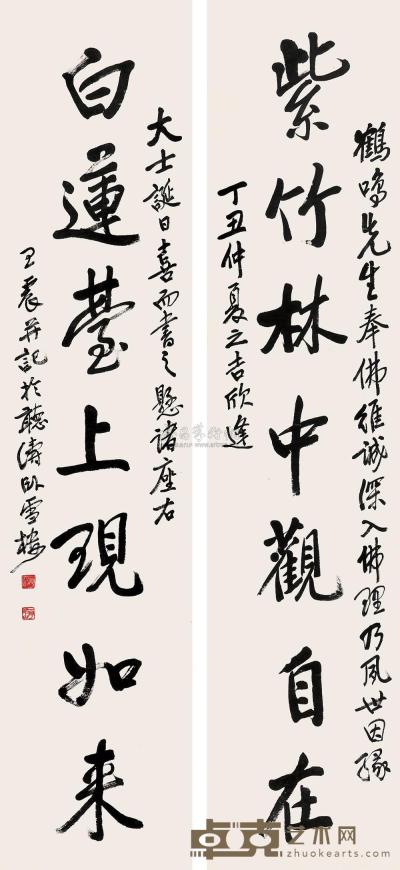 鶴鳴先生奉佛維誠深入佛理乃夙世因緣
紫竹林中觀自在
丁丑仲夏之吉欣逢
大士誕日喜而書之懸諸座右
白蓮臺上現如来
王震并記於聽濤臥雪樓
卓克艺术网
zhuokearts.com